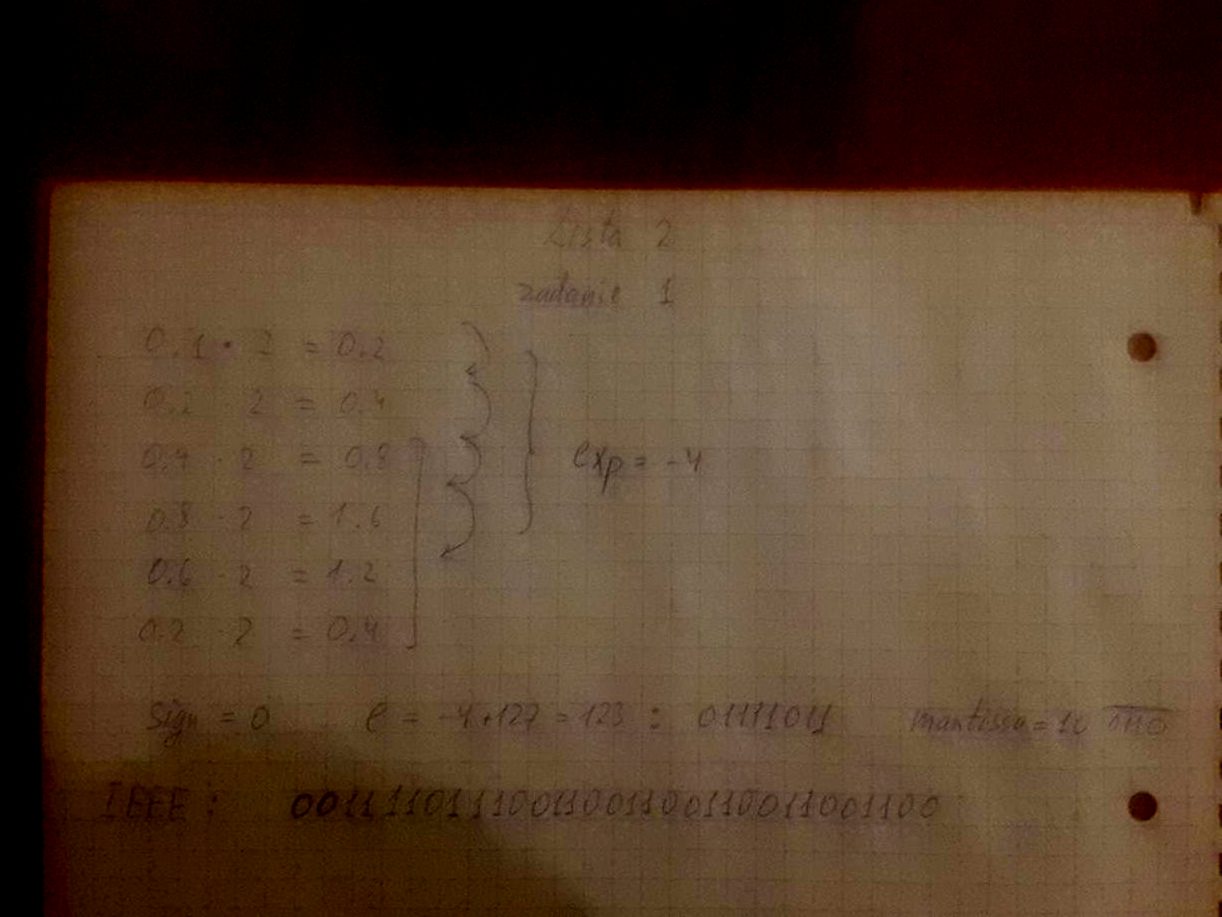 Lista 2
zadanie 1
0.1 · 2 = 0.2
0.2 · 2 = 0.4
0.4 · 2 = 0.8
exp = -4
0.8 · 2 = 1.6
0.6 · 2 = 1.2
0.2 · 2 = 0.4
Sign = 0 e = -4+127 = 123 : 01111011 mantissa = 10
IEEE : 00111101110011001100110011001100